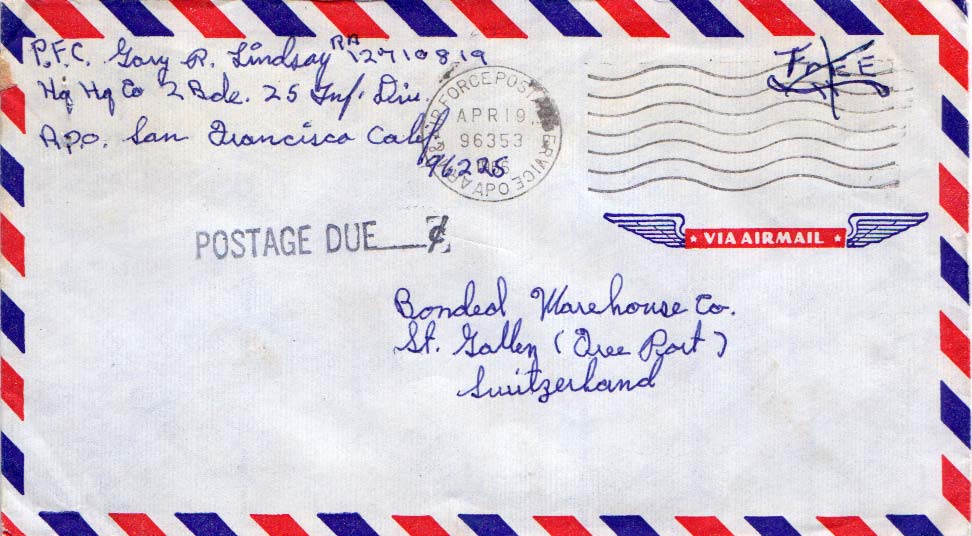 P.F.C. Gary R. Lindsay RA 12710819
Hq Hq Co 2 Bde. 25 Inf. Div.
A.P.O. San Francisco Calif.
96225
ARMY & AIR FORCE POSTAL SERVICE
APR 19
96353
APO
FREE
VIA AIRMAIL
POSTAGE DUE ¢
Bonded Warehouse Co.
St. Gallen (Free Port)
Switzerland